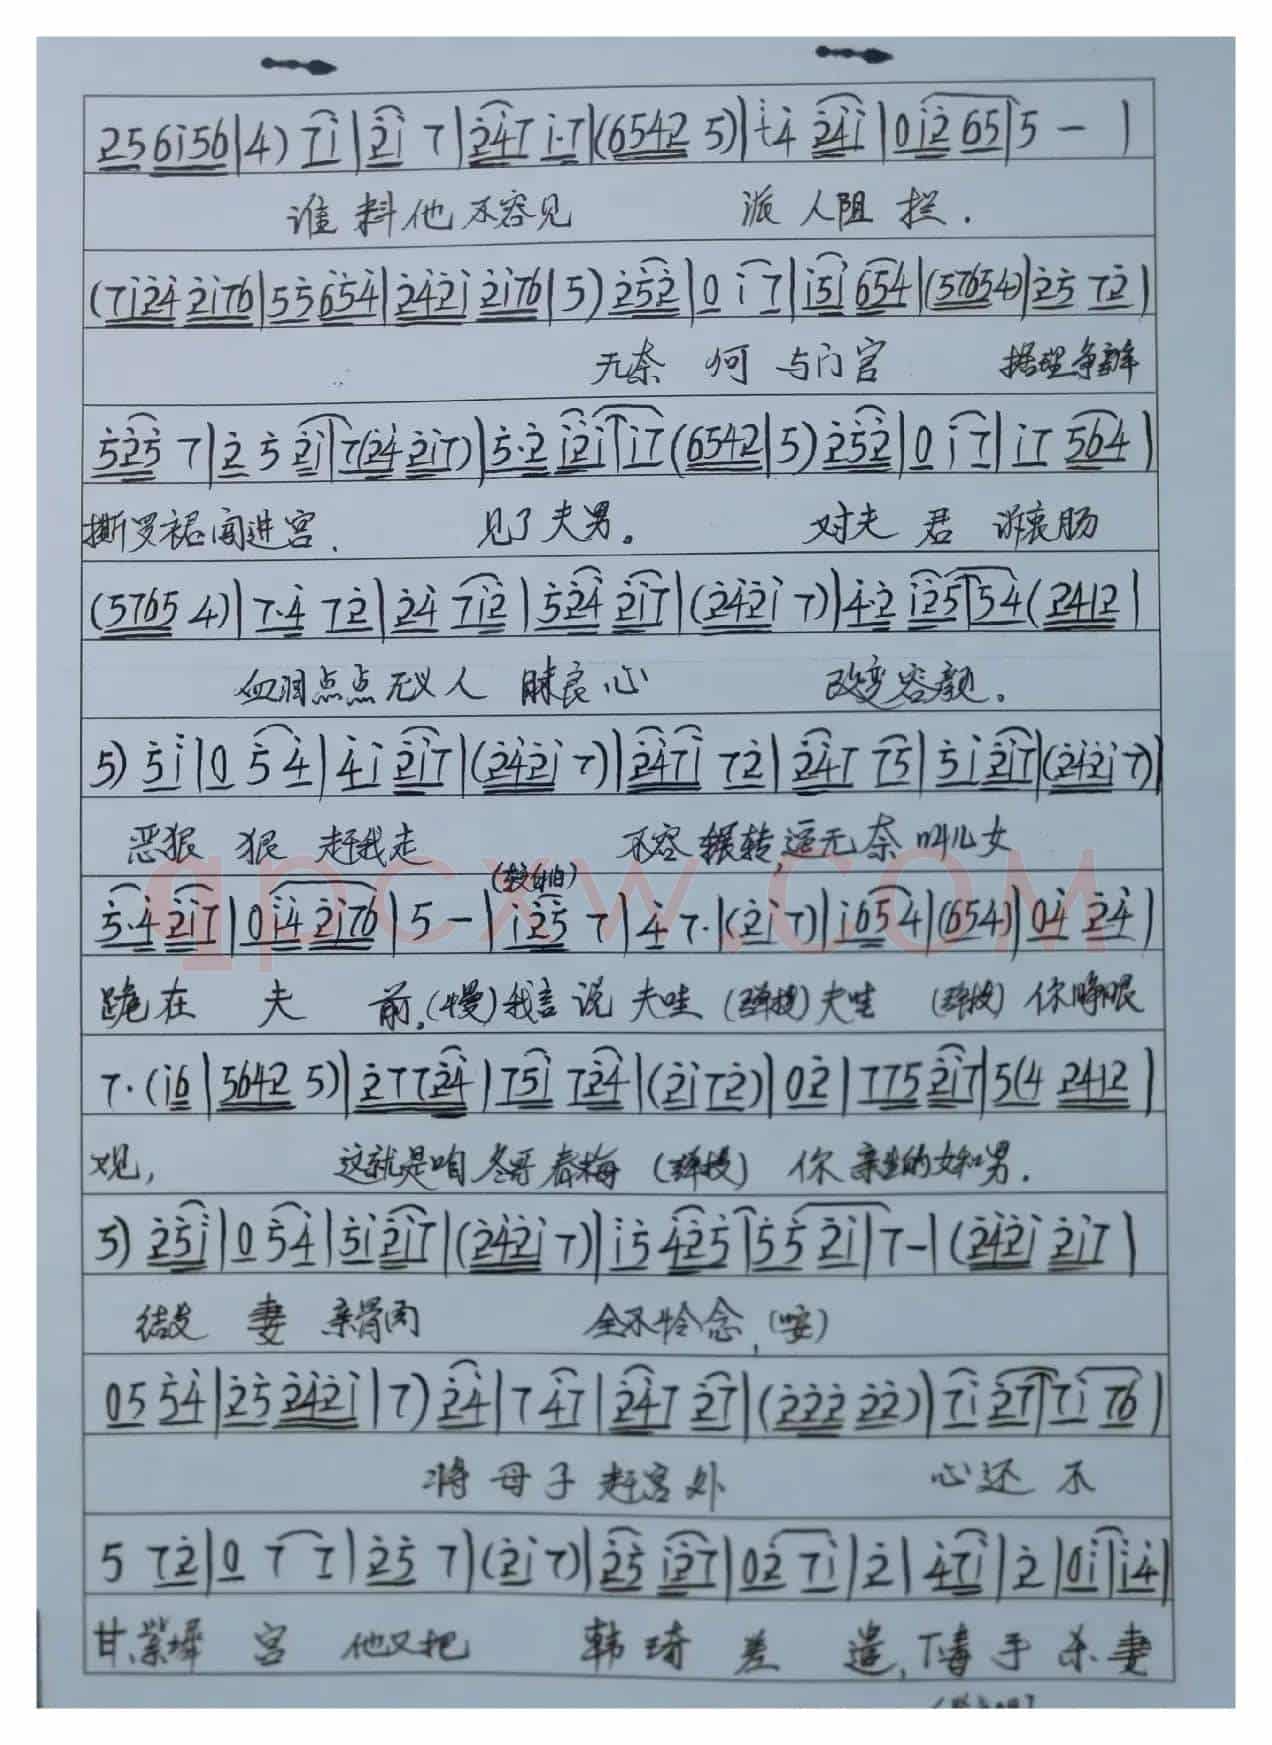 256i56|4) 7i|2i 7|247 i·7|(6542 5)|i4 24i|0i2 65|5 — |
谁料他不容见 派人阻拦.
(7i24 2i76|55654|242i 2i76|5) 252|0 i7|i5i 654|(57654)|25 72|
无奈何 与门官 据理争辩
525 7|2 5 2i|7(24 2i7)|5·2 i2i|i7(6542|5) 252|0 i7|i7 564|
撕罗裙闯进宫. 见了夫男。 对夫君 诉衷肠
(5765 4)|7·4 72|24 7i2|524 2i7|(242i 7)|4·2 i25|54(2412|
血泪点点无义人 昧良心 改变容颜。
5) 5i|0 54|4i 2i7|(242i 7)|247i 72|247 75|5i 2i7|(242i 7)|
恶狠狠 赶我走 不容辗转,逼无奈叫儿女
(较自由)
5·4 2i7|0i4 2i76|5 —|i25 7|4 7·|(2i 7)|i654|(654)|04 24|
跪在夫前。(慢)我言说夫哇(弹拨)夫哇 (弹拨) 你睁眼
7·(i6|5642 5)|27724|75i 724|(2i72)|02|775 2i7|5(4 2412|
观, 这就是咱冬哥春梅(弹拨) 你亲生的女和男.
5) 25i|0 54|5i 2i7|(242i 7)|i5 425|55 2i|7—|(242i 2i7|
结发妻亲骨肉 全不怜念,(哎)
05 54|25 242i|7) 24|7 47|247 27|(222 22)|7i 27|7i 76|
将母子赶宫外 心还不
5 72|0 7 7|25 7|(2i 7)|25 i27|02 7i|2|47i|2|0i|i4|
甘,紫墀宫他又把 韩琦差遣,下毒手杀妻
qpcxw.com